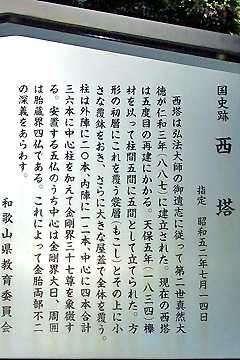 国史跡
西塔
指定 昭和五二年七月一四日
西塔は弘法大師の御遺志に従って第二世真然大
徳が仁和三年(八八七)に建立された。現在の西塔
は五度目の再建にかかる。天保五年(一八三四)欅
材を以って柱間五間に五間として立てられた。方
形の初層にこれを覆う裳層(もこし)とその上に小
さな覆鉢をおき、さらに大きな屋蓋で全体を覆う。
柱は外陣に二〇本、内陣に一二本、中心に四本合計
三六本に中心柱を加えて金剛界三十七尊を象徴す
る。安置する五仏のうち中心は金剛界大日、周囲
は胎蔵界四仏である。これによって金胎両部不二
の深義をあらわす。
和歌山県教育委員会